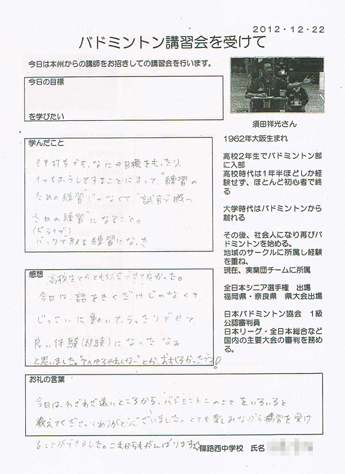 2012・12・22
バドミントン講習会を受けて
今日は本州からの講師をお招きしての講習会を行います。
今日の目標
を学びたい
須田祥光さん
1962年大阪生まれ
高校2年生でバドミントン部
に入部
高校時代は1年半ほどしか経
験せず、ほとんど初心者で終
る
大学時代はバドミントンから
離れる
その後、社会人になり再びバ
ドミントンを始める。
地域のサークルに所属し経験
を重ね、
現在、実業団チームに所属
全日本シニア選手権 出場
福岡県・奈良県 県大会出場
日本バドミントン協会 1級
公認審判員
日本リーグ・全日本総合など
国内の主要大会の審判を務め
る。
学んだこと
ことによって、"練習の
ための練習"じゃなくて
ための練習"になること。
バックで取る練習になった
感想
今日は、話をきくだけじゃなくて
じっさいに動いたり、
良い体験(経験)になったなと
思いました。
お礼の言葉
今日は、わざわざ遠いところから、バドミントンのことをいろいろと
教えてくださってありがとうございました。とても楽しみながら練習を受け
ることができました。これからもがんばります。
篠路西中学校 氏名